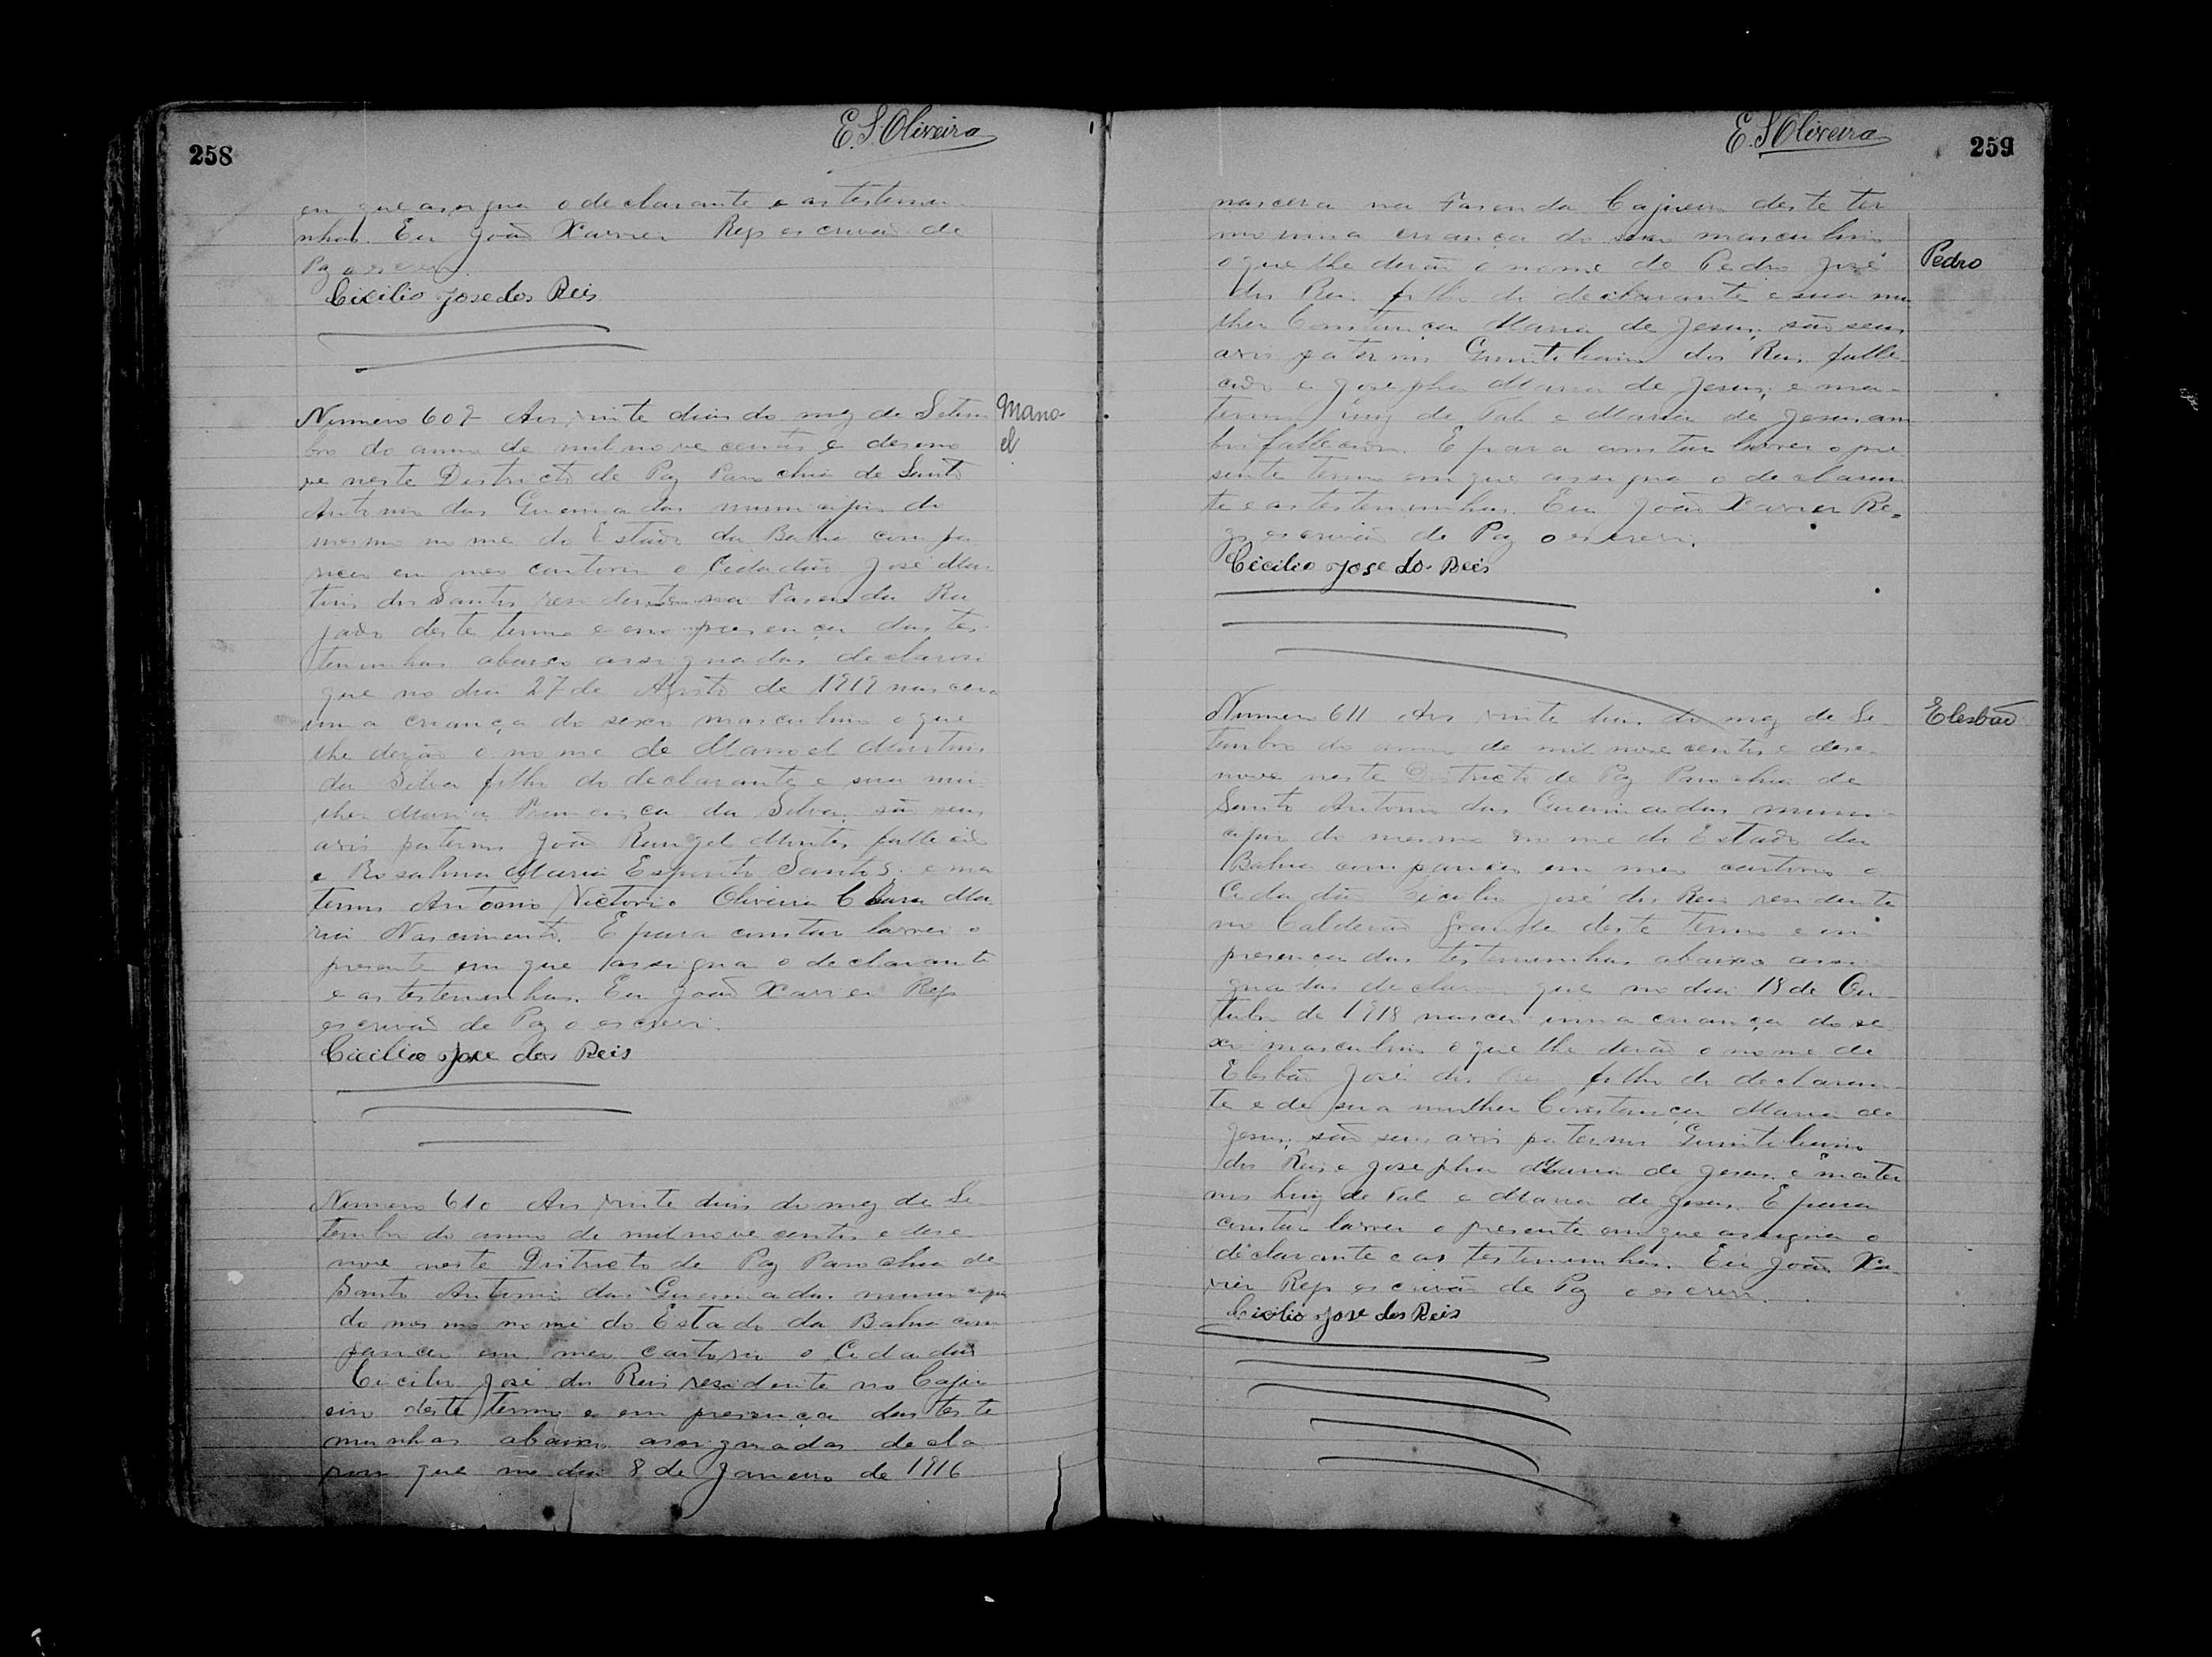 258
E. S. Oliveira
em que assigna o declarante e as testemu
nhas. Eu João Xavier Reys escrivão de
Paz o escrevi.
Cicilio Jose dos Reis
Numero 609 Aos vinte dias do mez de Setem
Mano
el
bro do anno de mil nove centos e deseno
ve neste Districto de Paz Parochia de Santo
Antonio das Queimadas municipio do
mesmo nome do Estado da Bahia compa
receu em meo cartorio o Cidadão José Mar
tins dos Santos residente na Fasenda Ra
jado deste termo e em presença das tes
temunhas abaixo assignadas declarou
que no dia 27 de Agosto de 1919 nascera
uma criança do sexo masculino o que
lhe derão o nome de Manoel Martins
da Silva filho do declarante e sua mu
lher Maria Francisca da Silva, são seus
avós paternos João Rangel fallecido
e Rosalina Maria Espirito Santos: e ma
ternos Antonio Victorio Oliveira Clara Ma
ria Nascimento. E para constar lavrei o
presente em que assigna o declarante
e as testemunhas. Eu João Xavier Reys
escrivão de Paz o escrevi.
Cicilio Jose dos Reis
Numero 610 Aos vinte dias do mez de Se
tembro do anno de mil nove centos e dese
nove neste Districto de Paz Parochia de
Santo Antonio das Queimadas municipio
do mesmo nome do Estado da Bahia com
pareceu em meo cartorio o Cidadão
Cicilio José dos Reis residente no Caju
eiro deste termo e em presença das teste
munhas abaixo assignadas decla
rou que no dia 8 de Janeiro de 1916
E. S. Oliveira
259
nascera na Fasenda Cajueiro deste ter
mo uma criança do sexo masculino
o que lhe derão o nome de Pedro José
Pedro
dos Reis filho do declarante e sua mu
lher Constança Maria de Jesus, são seus
avós paternos dos Reis falle
cido e Josepha Maria de Jesus; e ma
ternos Luiz de Tal e Maria de Jesus am
bos fallecidos. E para constar lavrei o pre
sente termo em que assigna o declaran
te e as testemunhas. Eu João Xavier Re
ys escrivão de Paz o escrevi.
Cicilio Jose dos Reis
Numero 611 Aos vinte dias do mez de Se
Elesbão
tembro do anno de mil nove centos e dese
nove neste Districto de Paz Parochia de
Santo Antonio das Queimadas muni
cipio do mesmo nome do Estado da
Bahia compareceu em meo cartorio o
Cidadão Cicilio José dos Reis residente
no Calderão Grande deste termo e em
presença das testemunhas abaixo assi
gnadas declarou que no dia 18 de Ou
tubro de 1918 nasceu uma criança do se
xo masculino o que lhe derão o nome de
Elesbão José dos Reis filho do declaran
te e de sua mulher Constança Maria de
Jesus, são seus avós paternos
dos Reis e Josepha Maria de Jesus e mater
nos Luiz de Tal e Maria de Jesus. E para
constar lavrei o presente em que assigna o
declarante e as testemunhas. Eu João Xa
vier Reys escrivão de Paz o escrevi.
Cicilio Jose dos Reis